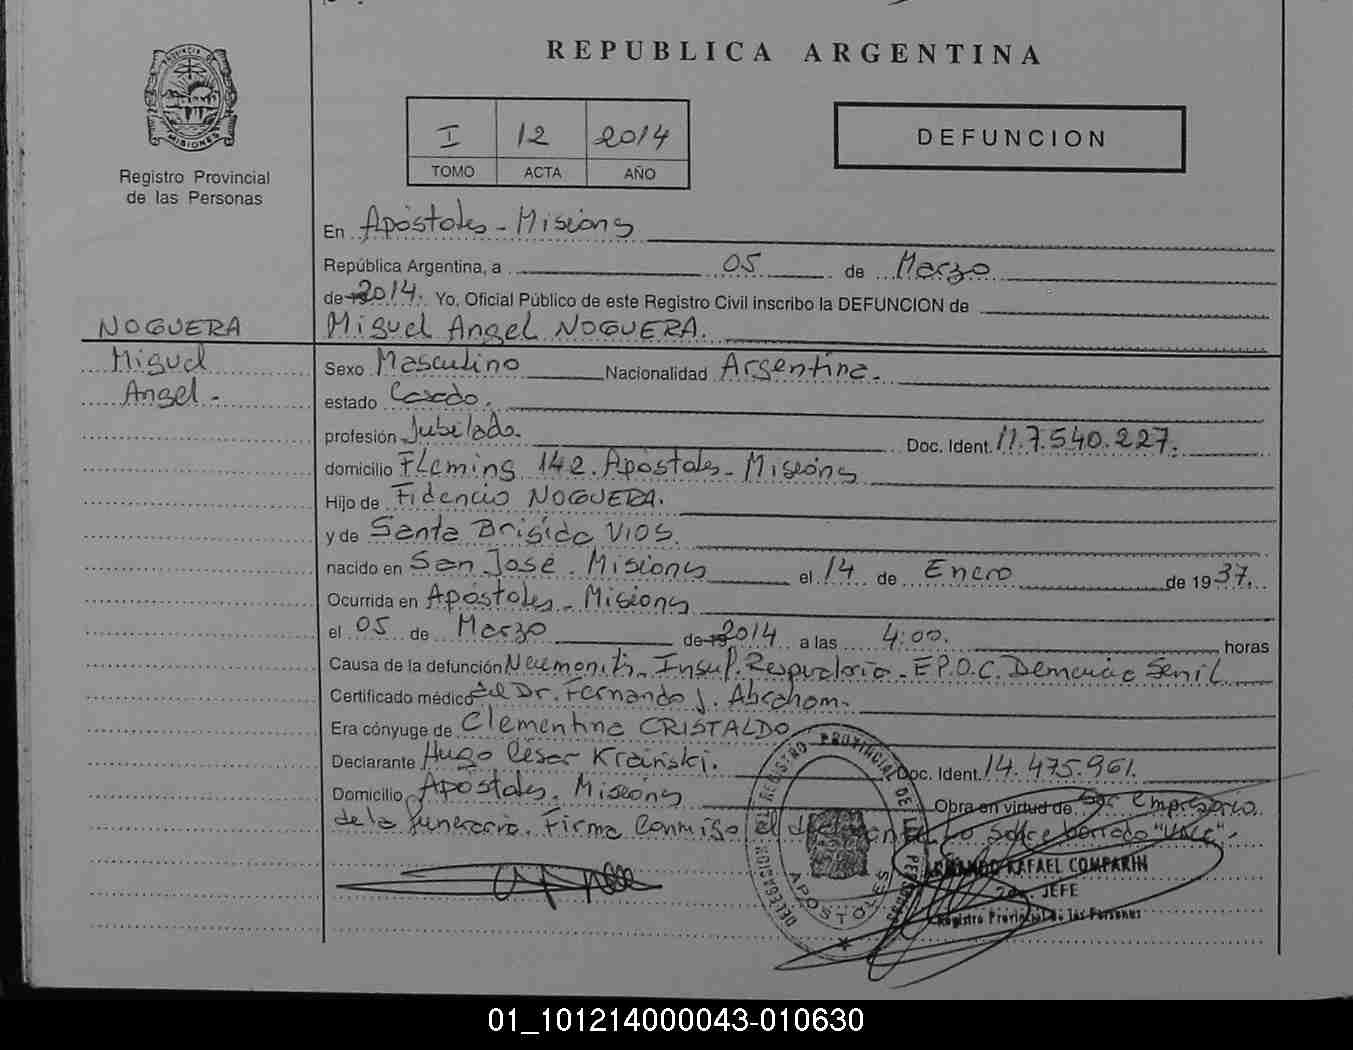 REPUBLICA ARGENTINA
PROVINCIA DE
MISIONES
Registro Provincial
de las Personas
I 12 2014
TOMO ACTA AÑO
DEFUNCION
En Apóstoles - Misiones
República Argentina, a 05 de Marzo
de 2014. Yo, Oficial Público de este Registro Civil inscribo la DEFUNCION de
NOGUERA
Miguel
Angel -
Miguel Angel NOGUERA.
Sexo Masculino Nacionalidad Argentina.
estado Casado.
profesión Jubilado. Doc. Ident. 11.7.540.227.
domicilio Fleming 142. Apóstoles - Misiones
Hijo de Fidencio NOGUERA.
y de Santa Brígida VIOS.
nacido en San José. Misiones el 14 de Enero de 1937.
Ocurrida en Apóstoles - Misiones
el 05 de Marzo de 2014 a las 4:00. horas
Causa de la defunción Insuf. Respiratoria - E.P.O.C. Demencia Senil
Certificado médico del Dr. Fernando J. Abrahom.
Era cónyuge de Clementina CRISTALDO
Declarante Hugo César Krainski. Doc. Ident. 14.475.961.
Domicilio Apóstoles. Misiones Obra en virtud de Ser empresario
de la funeraria. Firma conmigo el declarante. Lo sobre borrado
REGISTRO PROVINCIAL DE LAS PERSONAS
DELEGACION
APOSTOLES
ARMANDO RAFAEL COMPARIN
JEFE
Registro Provincial de las Personas
01_101214000043-010630